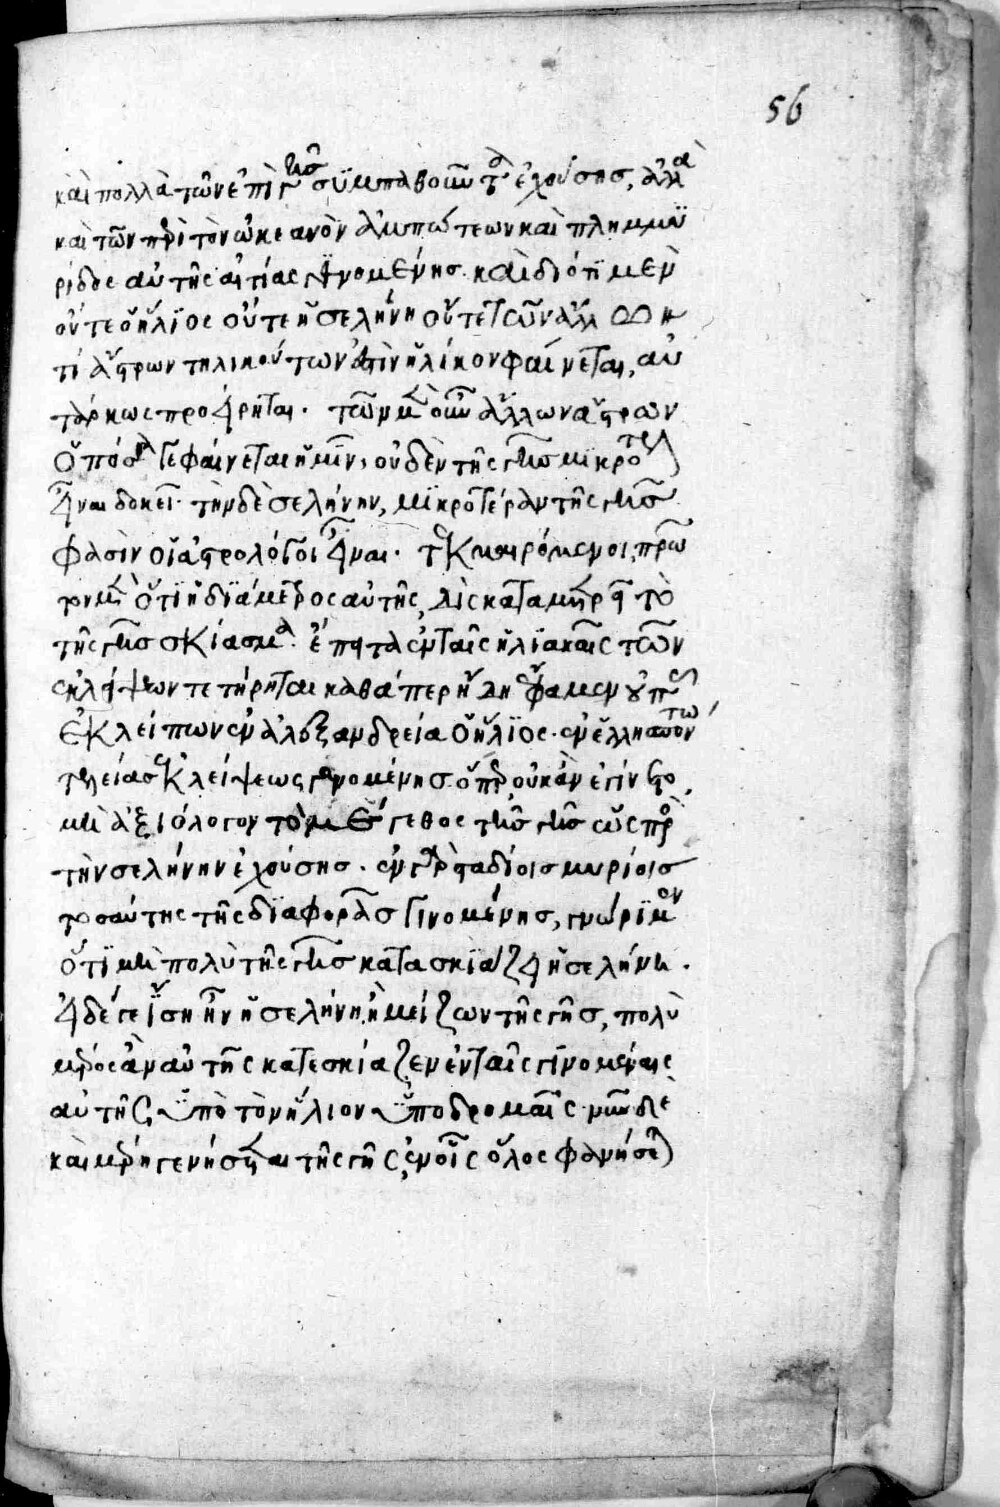 56
καὶ πολλὰ τῶν ἐπὶ γῆς συμπαθοῦντα ἐχούσης, ἀλλὰ
καὶ τῶν περὶ τὸν ὠκεανὸν ἀμπώτεων καὶ πλημμυ
ρίδος αὐτῆς αἰτίας γινομένης. καὶ διότι μὲν
οὔτε ὁ ἥλιος οὔτε ἡ σελήνη οὔτε τῶν ἄλλων
τι ἄστρων τηλικοῦτων ἐστὶν ἡλίκον φαίνεται, αὐ
τάρκως προείρηται. τῶν μὲν οὖν ἄλλων ἄστρων
ὁπόσα γε φαίνεται ἡμῖν, οὐδὲν τῆς γῆς μικρότερον
εἶναι δοκεῖ. τὴν δὲ σελήνην, μικροτέραν τῆς γῆς
φασὶν οἱ ἀστρολόγοι εἶναι. τεκμαιρόμενοι, πρῶ
τον μὲν ὅτι ἡ διάμετρος αὐτῆς δὶς καταμετρεῖ τὸ
τῆς γῆς σκίασμα. ἔπειτα ἐν ταῖς ἡλιακαῖς τῶν
ἐκλείψεων τετήρηται καθάπερ ἤδη ἔφαμεν
ἐκλείπων ἐν ἀλεξανδρεία ὁ ἥλιος. ἐν ἑλλησπόντω
τελείας ἐκλείψεως γενομένης. ὅπερ οὐκ ἂν ἐγίνετο
μὴ ἀξιόλογον τὸ μέγεθος τῆς γῆς ὡς πρὸς
τὴν σελήνην ἐχούσης. ἐν γὰρ σταδίοις μυρίοις
τοσαύτης τῆς διαφορᾶς γινομένης, γνώριμον
ὅτι μὴ πολὺ τῆς γῆς κατασκιάζει ἡ σελήνη.
εἰ δέ γε ἴση ἦν ἡ σελήνη, ἢ μείζων τῆς γῆς, πολὺ
μέρος ἂν αὐτῆς κατεσκίαζεν ἐν ταῖς γινομέναις
αὐτῆς ὑπὸ τὸν ἥλιον ὑποδρομαῖς. νῦν δὲ
καὶ μέρη γενήσεται τῆς γῆς, ἐν οἷς ὅλος φανήσεται